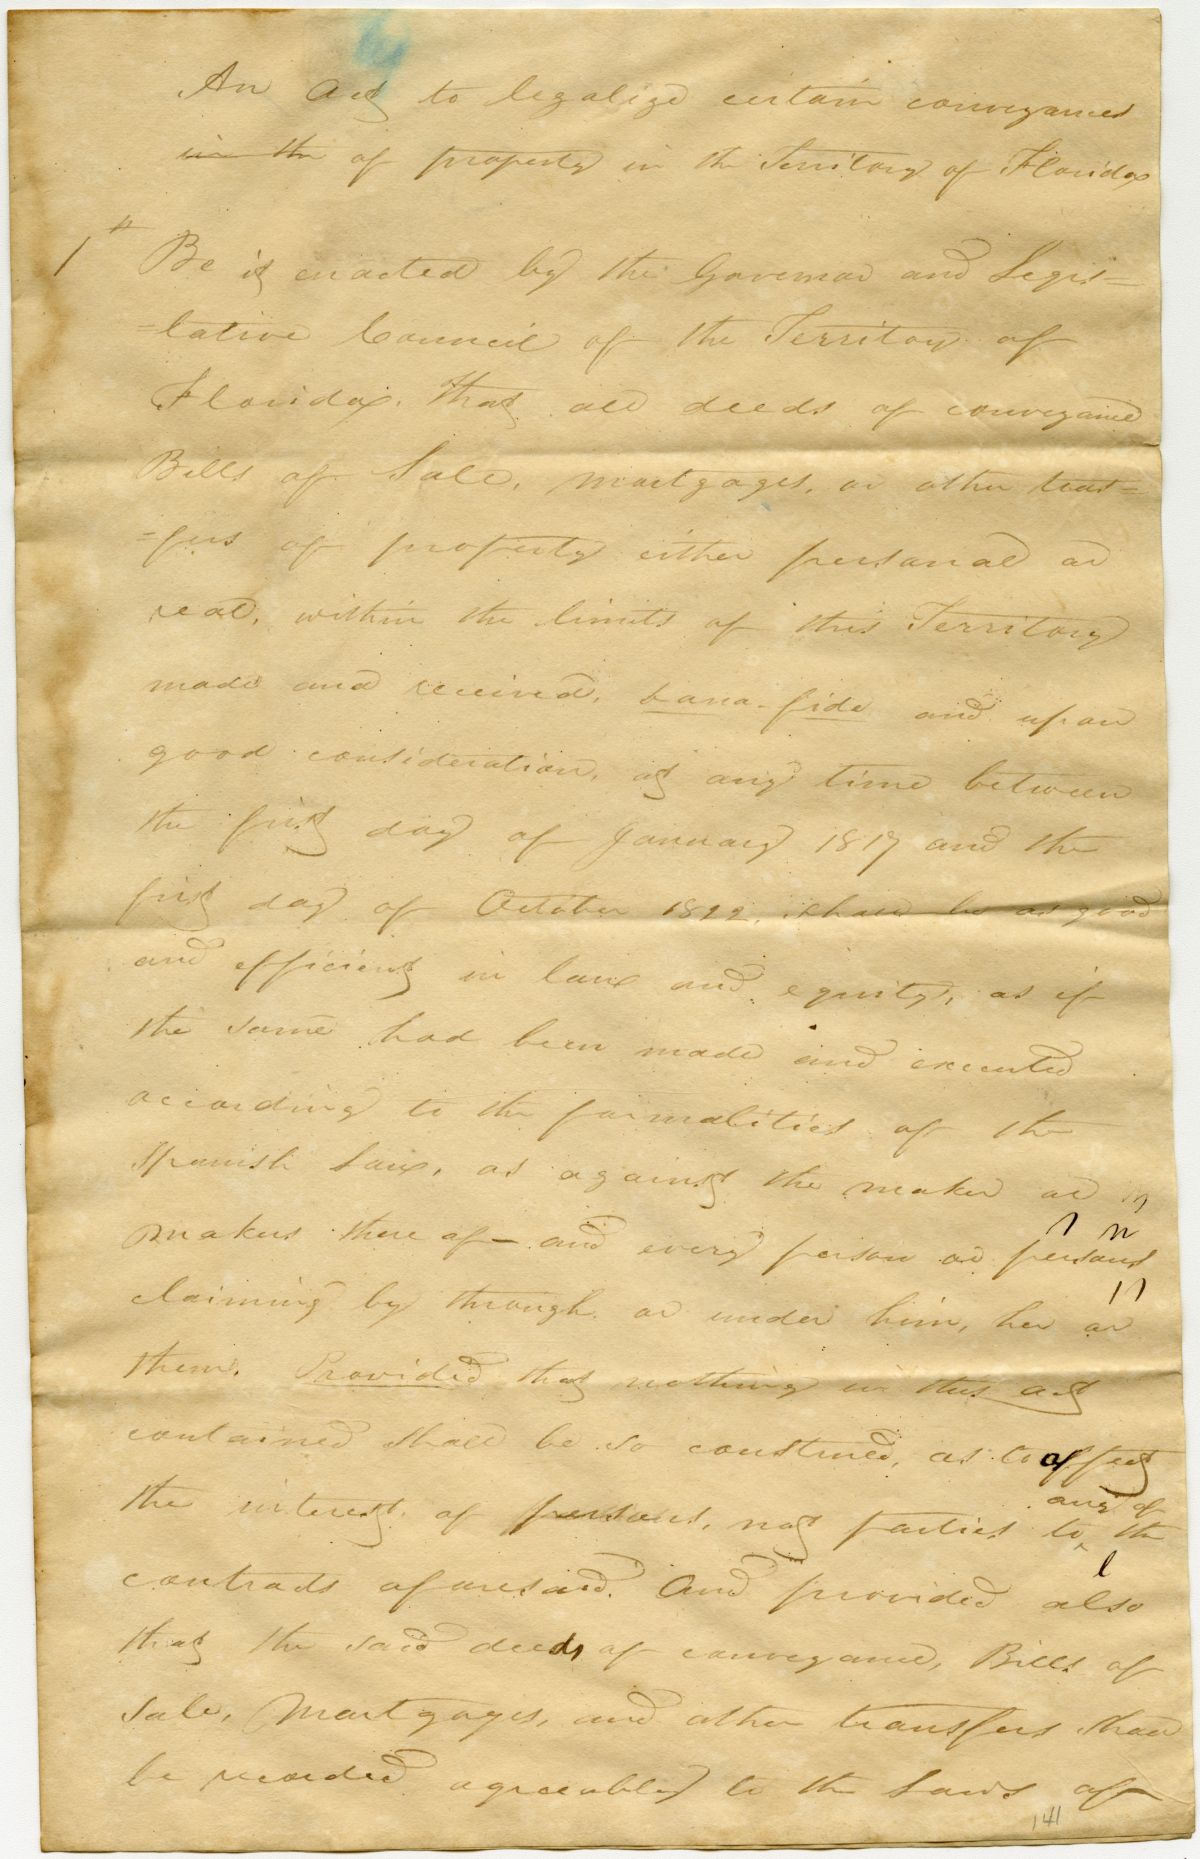 An Act to legalize certain conveyances
in the of property in the Territory of Florida
1st Be it enacted by the Governor and Legis-
-lative Council of the Territory of
Florida. That all deeds of conveyance
Bills of Sale, mortgages, or other trans-
-fers of property either personal or
real, within the limits of this Territory
made and received, bona-fide and upon
good consideration, at any time between
the first day of January 1817 and the
first day of October 1822, shall be as good
and efficient in law and equity, as if
the same had been made and executed
according to the formalities of the
Spanish Law, as against the maker or
makers there of - and every person or persons
claiming by through or under him, her or
them. Provided that nothing in this act
contained shall be so construed, as to affect
the interest of persons, not parties to any of the
contracts aforesaid. And provided also
that the said deeds of conveyance, Bills of
Sale, Mortgages, and other transfers shall
be recorded agreeably to the Laws of
141